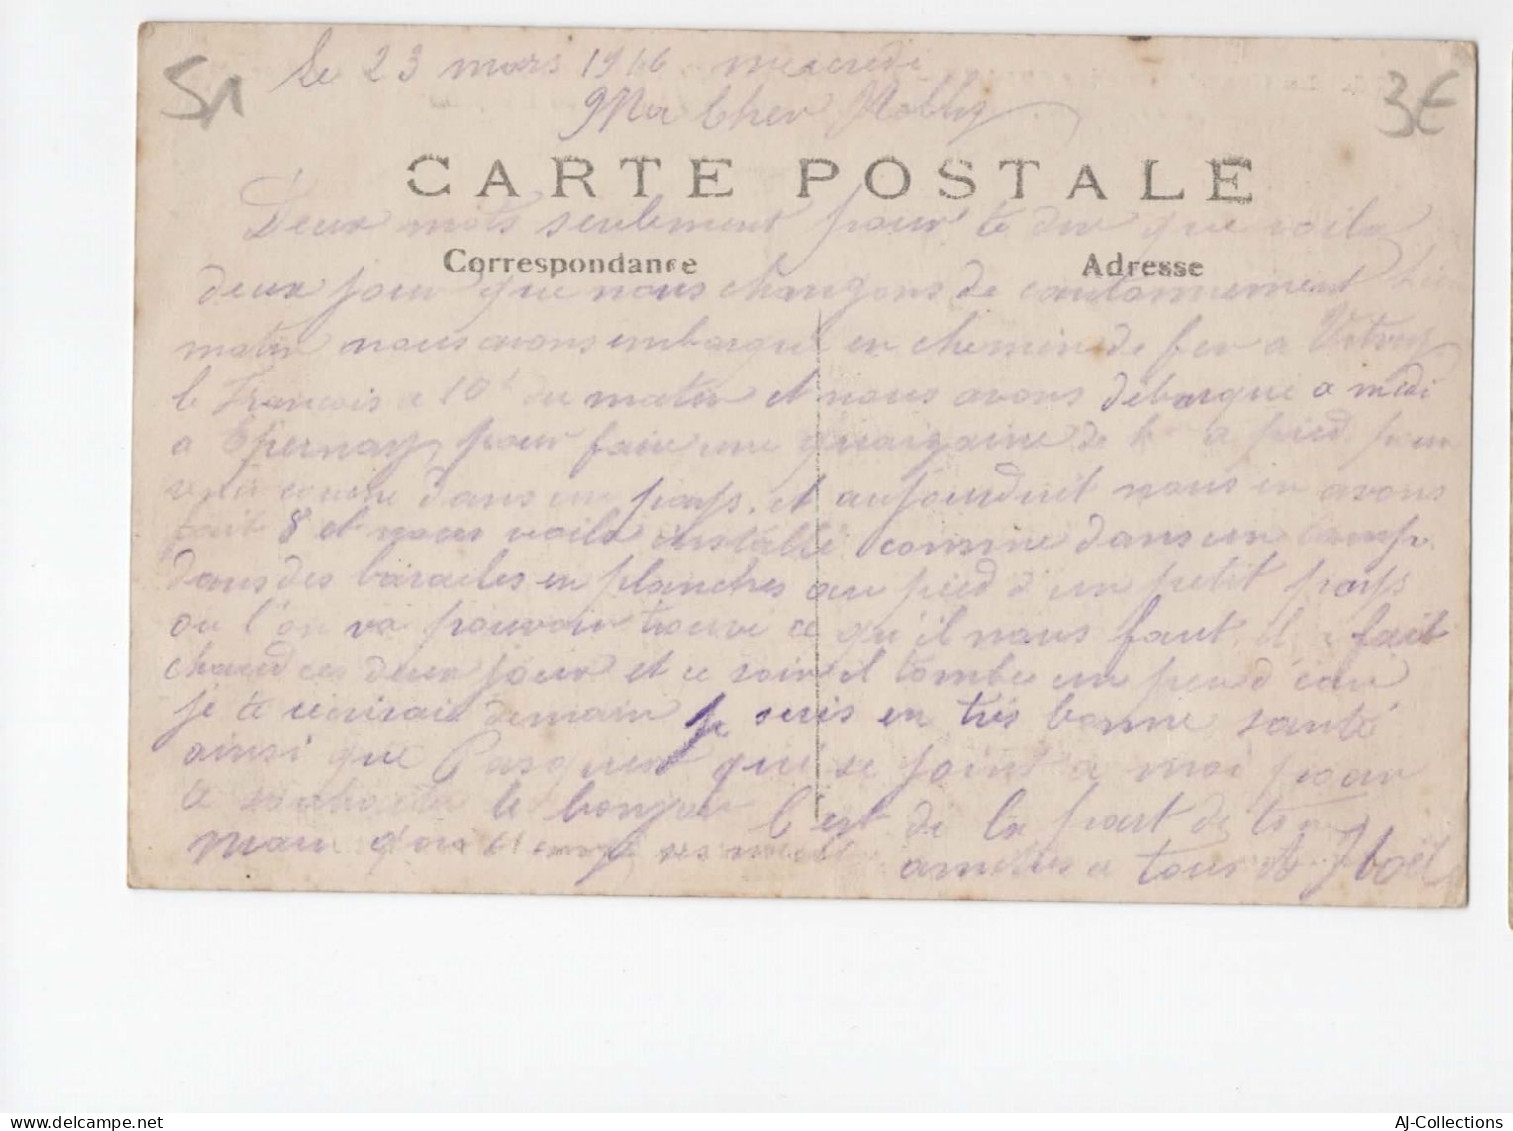 51
3€
le 23 mars 1916 mercredi
Ma Cher
CARTE POSTALE
Deux mots seulement pour te dir que voila
Correspondance
Adresse
deux jour que nous changons de cantonnement hier
matin nous avons embarqué en chemin de fer a Vitry
le Francois a 10h du matin et nous avons débarqué a midi
a Epernay pour faire une quinzaine de k a pied pour
venir couche dans un pays. et aujourduit nous en avons
fait 8 et nous voila installé comme dans un camp
dans des baracles en planches au pied d'un petit pays
ou l'on va pouvoir trouve ce qu'il nous faut il fait
chaud ces deux jour et ce soir il tombe un peu d'eau
je te récrirai demain je suis en très bonne santé
ainsi que Pasquet qui se joint a moi pour
te souhaiter le bonjour C'est de la part de ton
amities a tous
AJ-Collections